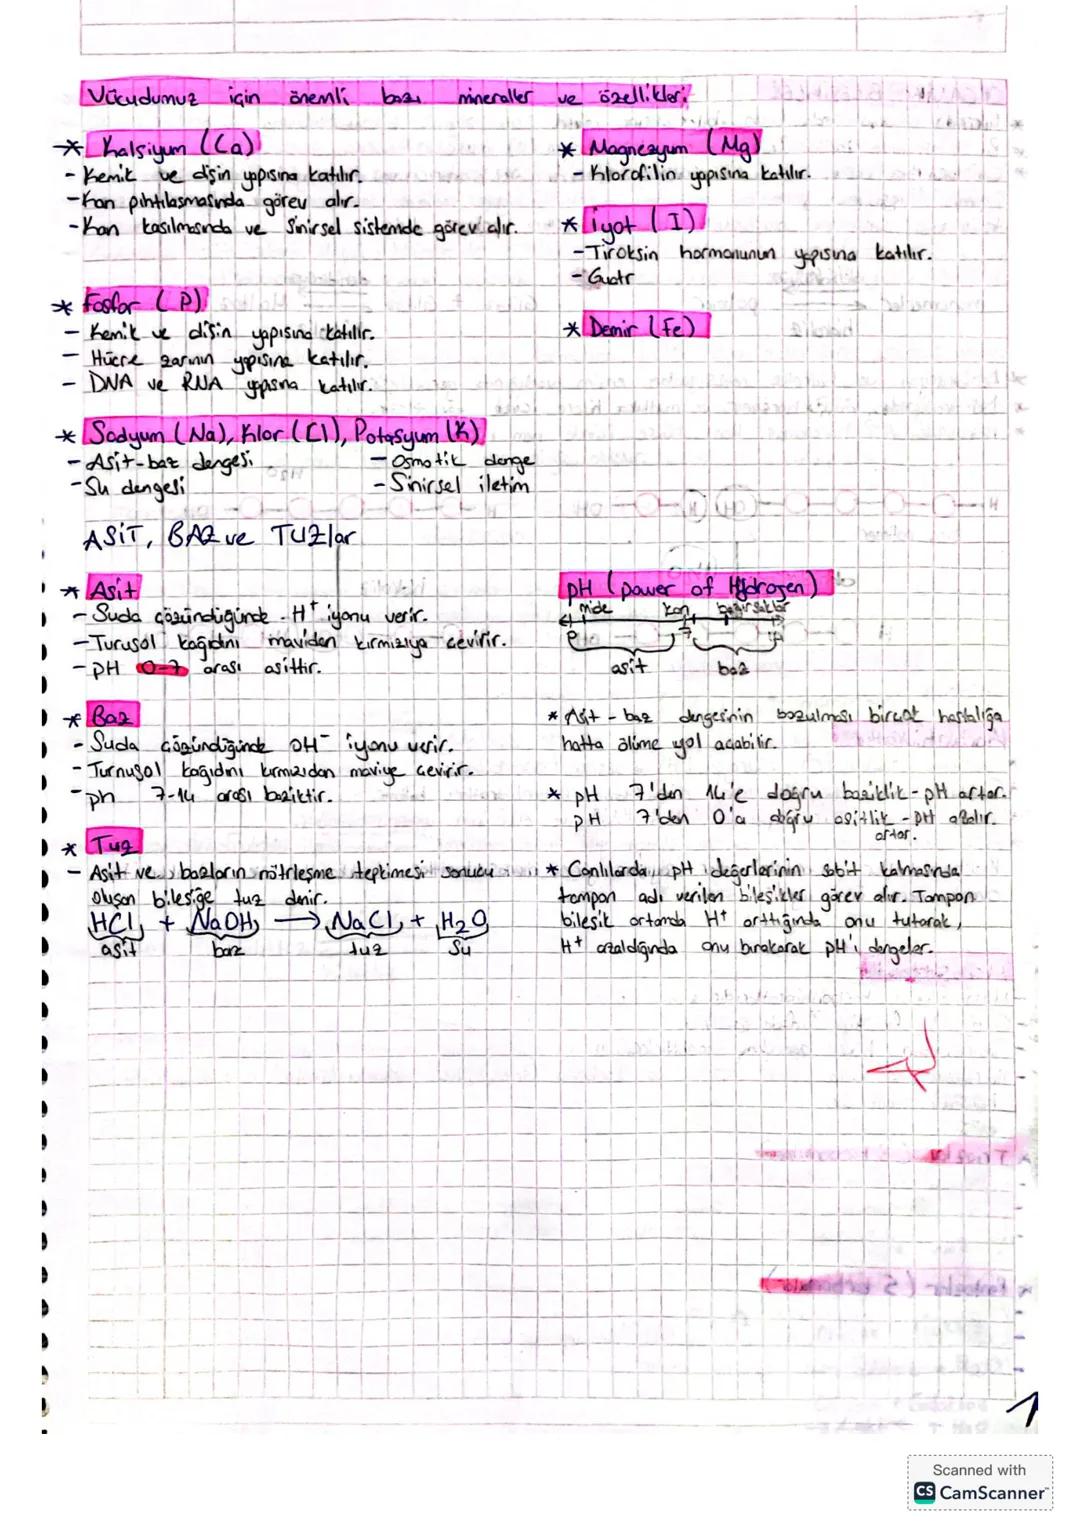 Vücudumuz için önemli bazı mineraller ve özellikleri;
* Kalsiyum (Ca)
- Kemik ve dişin yapısına katılır.
- Kan pıhtılaşmasında görev alır.
- Kan kasılmasında ve Sinirsel sistemde görev alır.
* Fosfor (P)
- Kemik ve dişin yapısına katılır.
- Hücre zarının yapısına katılır.
- DNA ve RNA yapısına katılır.
* Sodyum (Na), Klor (Cl), Potasyum (K)
- Asit-baz dengesi - Osmotik denge
- Su dengesi - Sinirsel iletim
* Magnezyum (Mg)
- Klorofilin yapısına katılır.
* İyot (I)
- Tiroksin hormonunun yapısına katılır.
- Guatr
* Demir (Fe)
ASİT, BAZ ve TUZlar
* Asit
- Suda çözündüğünde H⁺ iyonu verir.
- Turusol kağıdını maviden kırmızıya çevirir.
- pH 0-7 arası asittir.
* Baz
- Suda çözündüğünde OH⁻ iyonu verir.
- Turnusol kağıdını kırmızıdan maviye çevirir.
- ph 7-14 arası baziktir.
* Tuz
- Asit ve bazların nötrleşme tepkimesi sonucu
oluşan bileşiğe tuz denir.
HCl + NaOH → NaCl + H₂O
asit baz tuz Su
pH (power of Hydrogen)
mide kan bağırsaklar
7
asit baz
* Asit - baz dengesinin bozulması birçok hastalığa
hatta ölüme yol açabilir.
* pH 7'den 14'e doğru baziklik - pH artar.
pH 7'den 0'a doğru asitlik - pH azalır.
artar.
* Canlılarda pH değerlerinin sabit kalmasında
tampon adı verilen bileşikler görev alır. Tampon
bileşik ortamda H⁺ arttığında onu tutarak,
H⁺ azaldığında onu bırakarak pH'ı dengeler.
1
Scanned with
CS CamScanner